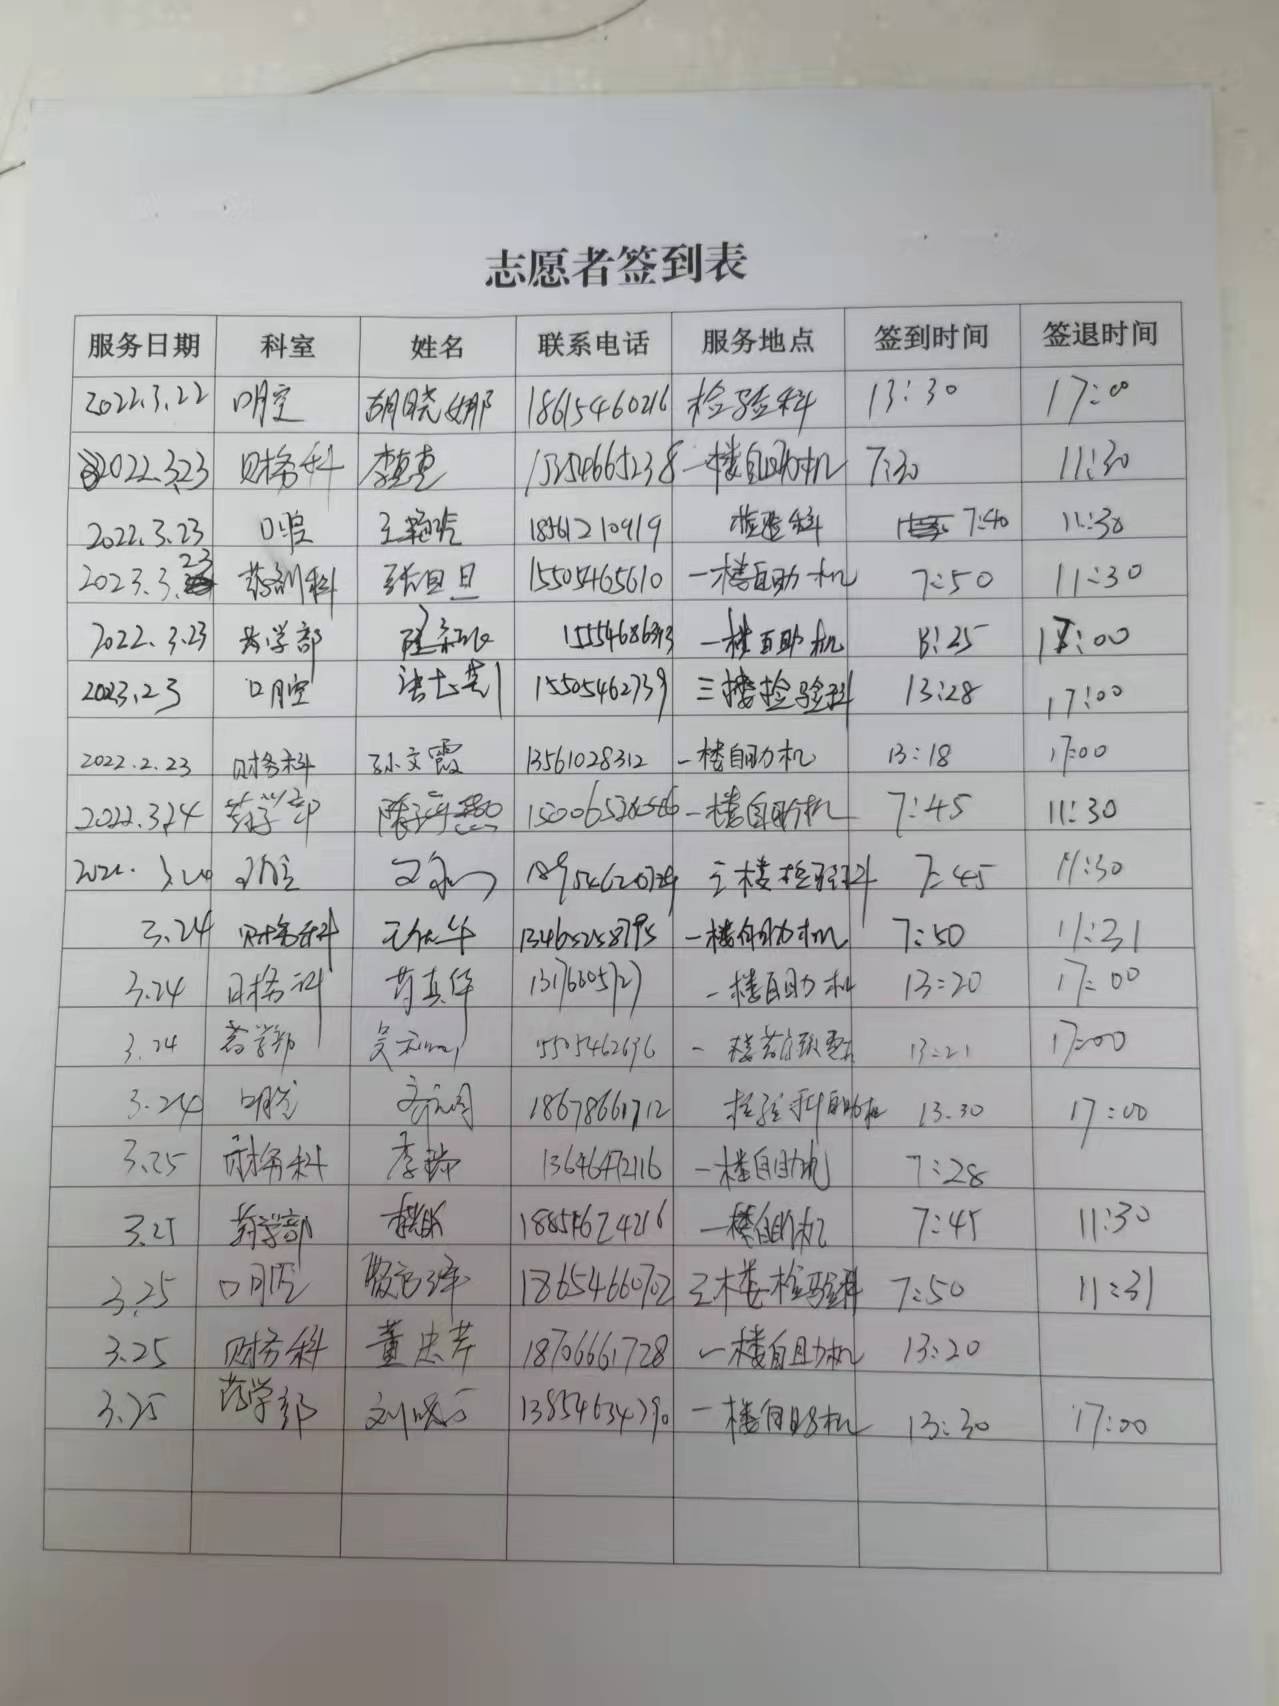 志愿者签到表
服务日期 科室 姓名 联系电话 服务地点 签到时间 签退时间
2022.3.22 口腔 胡晓娜 18615460216 检验科 13:30 17:00
2022.3.23 财务科 15254665238 一楼自助机 7:30 11:30
2022.3.23 口腔 18561210919 检验科 7:40 11:30
2023.3.23 药剂科 张旦旦 15505465610 一楼自助机 7:50 11:30
2022.3.23 药学部 一楼自助机 17:00
2023.23 口腔 15505462739 三楼检验科 13:28 17:00
2022.2.23 财务科 孙文霞 13561028312 一楼自助机 13:18 17:00
2022.3.24 药学部 一楼自助机 7:45 11:30
口腔 三楼检验科 7:45 11:30
3.24 财务科 13465258795 一楼自助机 7:50 11:31
3.24 财务科 一楼自助机 13:20 17:00
3.24 药学部 15505462696 一楼 13:21 17:00
3.24 口腔 18678661712 检验科自助机 13.30 17:00
3.25 财务科 李瑞 13646472116 一楼自助机 7:28
3.25 药学部 18854674216 一楼自助机 7:45 11:30
3.25 口腔 18654660702 三楼检验科 7:50 11:31
3.25 财务科 董忠芹 18706661728 一楼自助机 13:20
3.25 药学部 13854634790 一楼自助机 13:30 17:00